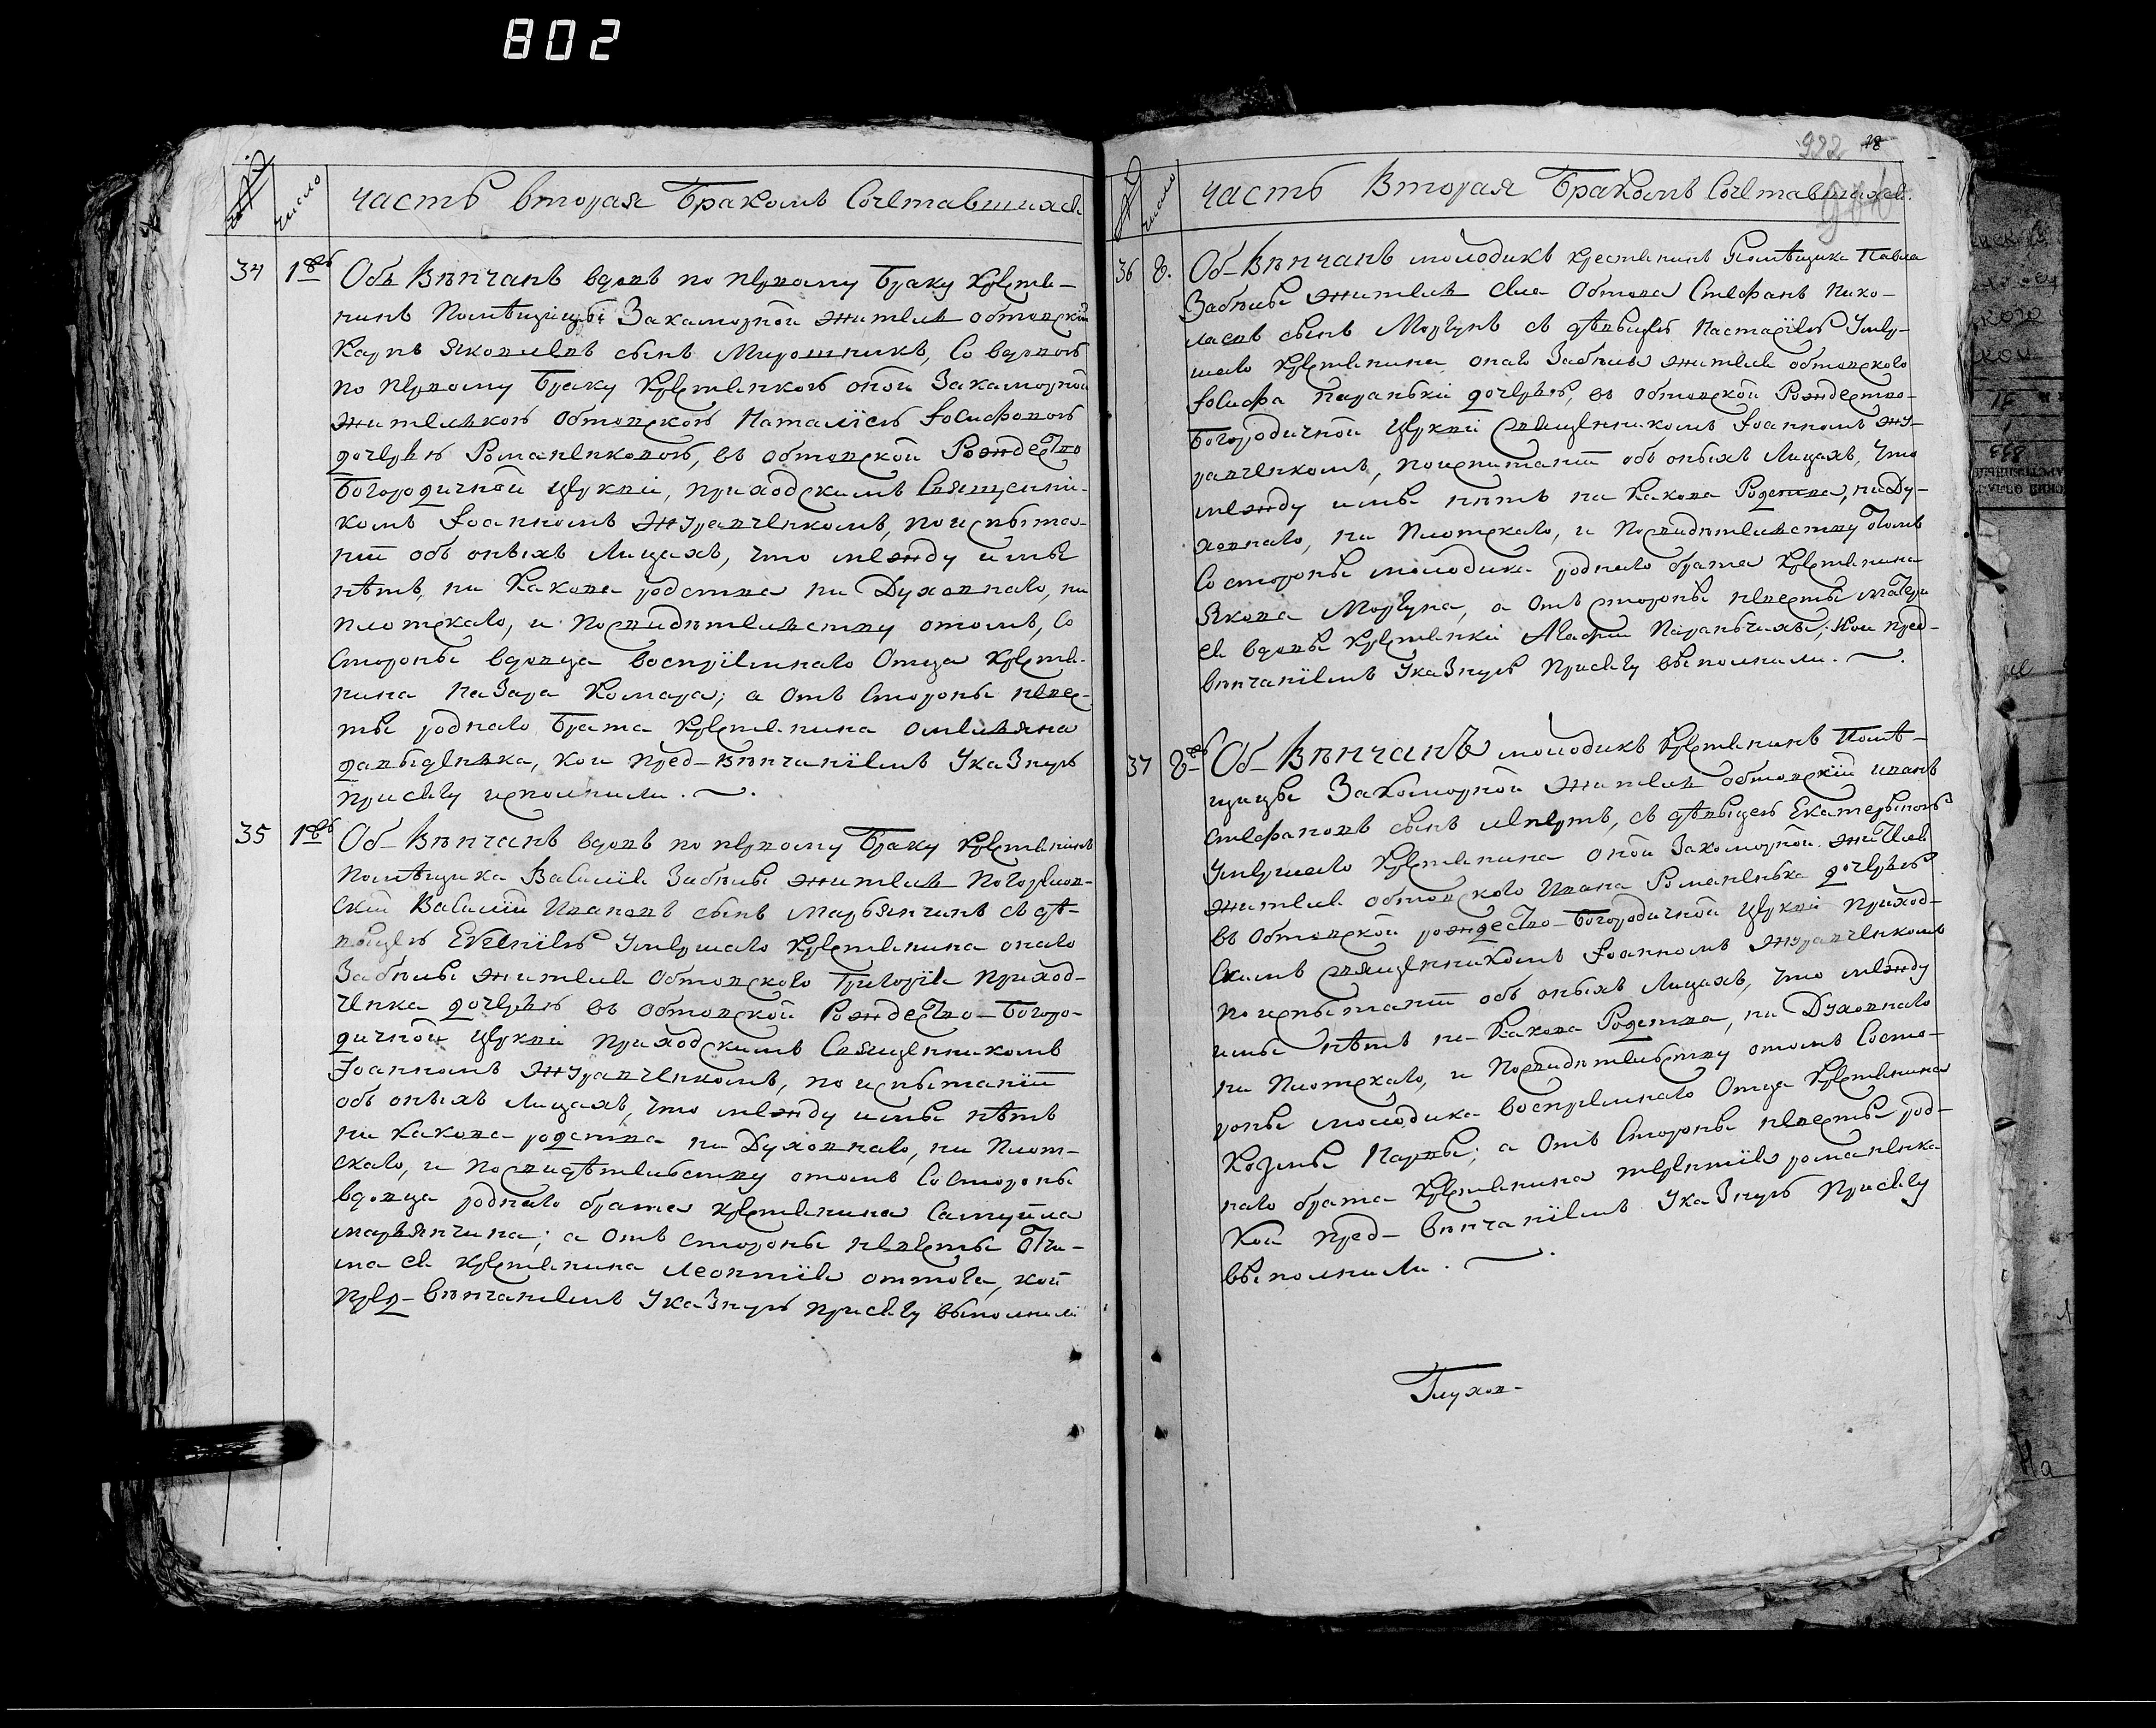 802
число
часть вторая Бракомъ Сочетавшихся
34 18
Объ Вѣнчанъ вдовъ по первому Браку Крестья-
нинъ Помѣщицы Закаморной житель обтовскій
Карпъ Яковлевъ сынъ Мирошникъ, Со вдовою
по первому Браку Крестьянкою оной Закаморной
жителькою Обтовскою Наталіею Іосифовою
дочерью Романенковою, въ обтовской Рождество
Богородичной Церкви, приходскимъ Священни-
комъ Іоанномъ Журавченкомъ, по испыта-
ніи объ оныхъ Лицахъ, что между имы
нѣтъ, ни Какова родства ни Духовнаго, ни
плотскаго, и Посвидѣтельству отомъ, Со
Стороны вдовца воспріимнаго Отца Крестья-
нина Назара Комара; а Отъ Стороны невес-
ты роднаго Брата Крестьянина омельяна
давыденка, кои пред-вѣнчаніемъ Указную
присягу исполнили.
35
Об-Вѣнчанъ вдовъ по первому Браку Крестьянинъ
Помѣщика Василія Забѣлы житель Погорелов-
скій Василій Ивановъ сынъ марьянчинъ съ дѣ-
вицею Евгеніею Умершаго Крестьянина онаго
Забѣлы жителя Обтовского Григорія Приход-
ченка дочерью въ обтовской Рождество-Богоро-
дичной Церкви приходскимъ Священникомъ
Іоанномъ Журавченкомъ, по испытаніи
объ оныхъ Лицахъ, что между имы нѣтъ
ни Какова родства ни Духовнаго, ни Плот-
скаго, и Посвидѣтельству отомъ Со Стороны
вдовца роднаго брата крестьянина Самуйла
марьянчина; а Отъ стороны невесты Отчи-
ма ея крестьянина леонтія, кои
пред-вѣнчаніемъ Указную присягу выполнили
922 18
число
часть Вторая Бракомъ Сочетавшихся.
36 8.
Об-Вѣнчанъ молодикъ крестьянинъ Помѣщика Павла
Забѣлы житель Села Обтова Стефанъ Нико-
лаевъ сынъ Моргунъ съ дѣвицею Настасіею Умер-
шаго Крестьянина онаго Забѣлы жителя обтовского
Іосифа Параньки дочерью, въ обтовской Рождество-
Богородичной Церкви священникомъ Іоанномъ Жу-
равченкомъ, поиспытаніи объ оныхъ Лицахъ, что
между имы нѣтъ ни Какова Родства, ни Ду-
ховнаго, ни Плотскаго, и Посвидѣтельству Отомъ
Со стороны молодика роднаго брата Крестьянина
Якова Моргуна, а Отъ стороны невесты матери
ея вдовы Крестьянки Агафіи Параньчихы, Кои пред-
вѣнчаніемъ Указную Присягу выполнили.
37
Об-Вѣнчанъ молодикъ Крестьянинъ Помѣ-
щицы Закоморной житель обтовскій иванъ
Стефановъ сынъ, съ дѣвицею Екатериною
Умершаго Крестьянина оной Закоморной
жителя обтовского Ивана Романенька дочерью
въ Обтовской рождество-Богородичной Церкви приход-
скимъ священникомъ Іоанномъ Журавченкомъ
по испытаніи объ оныхъ Лицахъ, что между
имы нѣтъ ни-Какова Родства, ни Духовнаго
ни Плотскаго, и Посвидѣтельству отомъ Состо-
роны молодика воспреимнаго Отца Крестьянина
Козмы; а Отъ Стороны невесты род-
наго брата Крестьянина терентія романенка
Кои пред-вѣнчаніемъ Указную Присягу
выполнили.
Глухов-